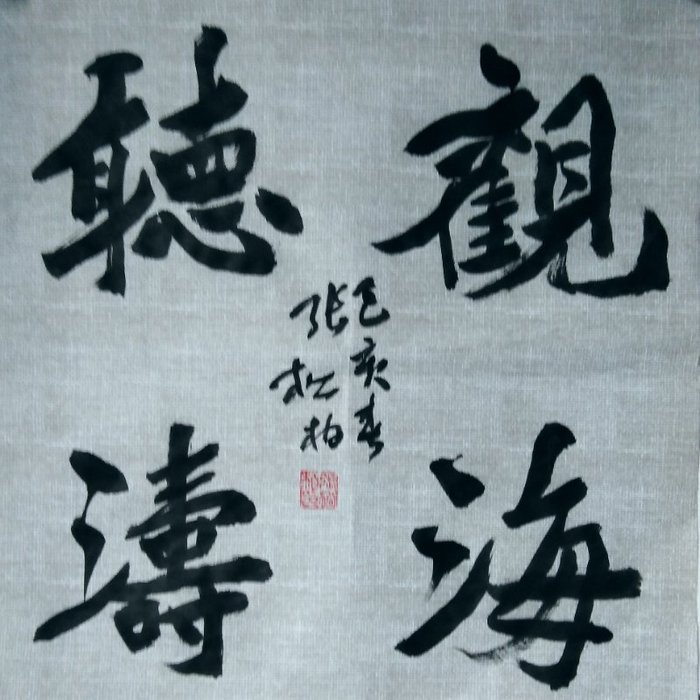 觀海
聽濤
己亥春
張松柏